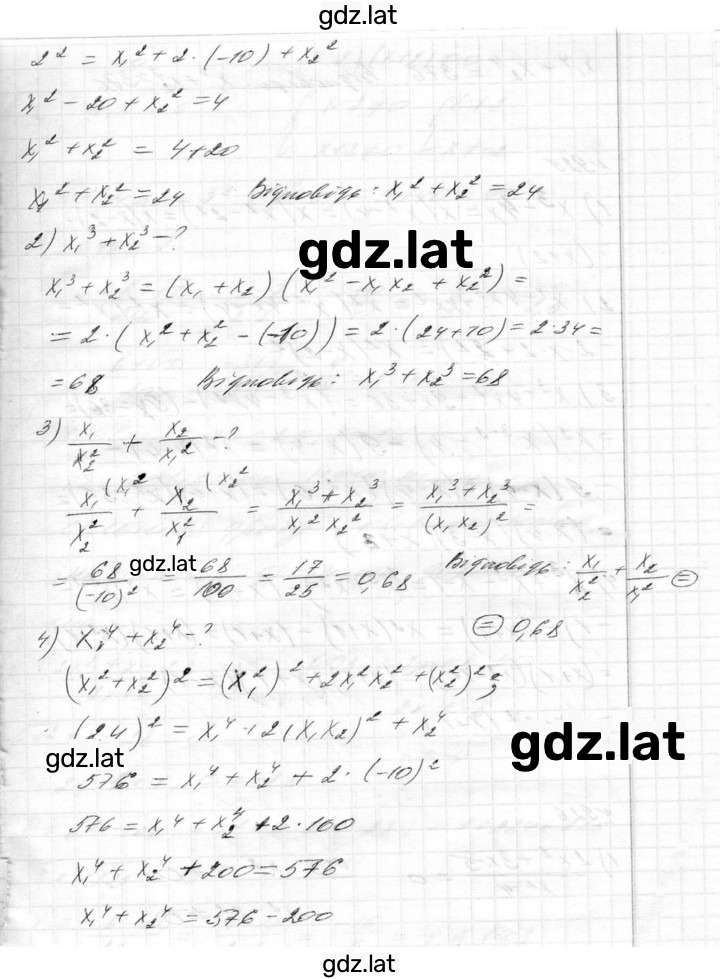 gdz.lat
2² = x₁² + 2·(-10) + x₂²
x₁² - 20 + x₂² = 4
x₁² + x₂² = 4+20
x₁² + x₂² = 24 Відповідь: x₁² + x₂² = 24
2) x₁³ + x₂³ - ?
gdz.lat
x₁³ + x₂³ = (x₁ + x₂)(x₁² - x₁x₂ + x₂²) =
= 2·(x₁² + x₂² - (-10)) = 2·(24+10) = 2·34 =
= 68 Відповідь: x₁³ + x₂³ = 68
3) x₁/x₂² + x₂/x₁² - ?
x₁(x₁²/x₂² + x₂(x₂²/x₁² = (x₁³ + x₂³)/(x₁² x₂²) = (x₁³ + x₂³)/(x₁x₂)² =
gdz.lat
= 68/(-10)² = 68/100 = 17/25 = 0,68 Відповідь: x₁/x₂² + x₂/x₁² =
= 0,68
4) x₁⁴ + x₂⁴ - ?
(x₁² + x₂²)² = (x₁²)² + 2x₁²x₂² + (x₂²)²;
(24)² = x₁⁴ + 2(x₁x₂)² + x₂⁴
gdz.lat
gdz.lat
576 = x₁⁴ + x₂⁴ + 2·(-10)²
576 = x₁⁴ + x₂⁴ + 2·100
x₁⁴ + x₂⁴ + 200 = 576
x₁⁴ + x₂⁴ = 576 - 200
gdz.lat